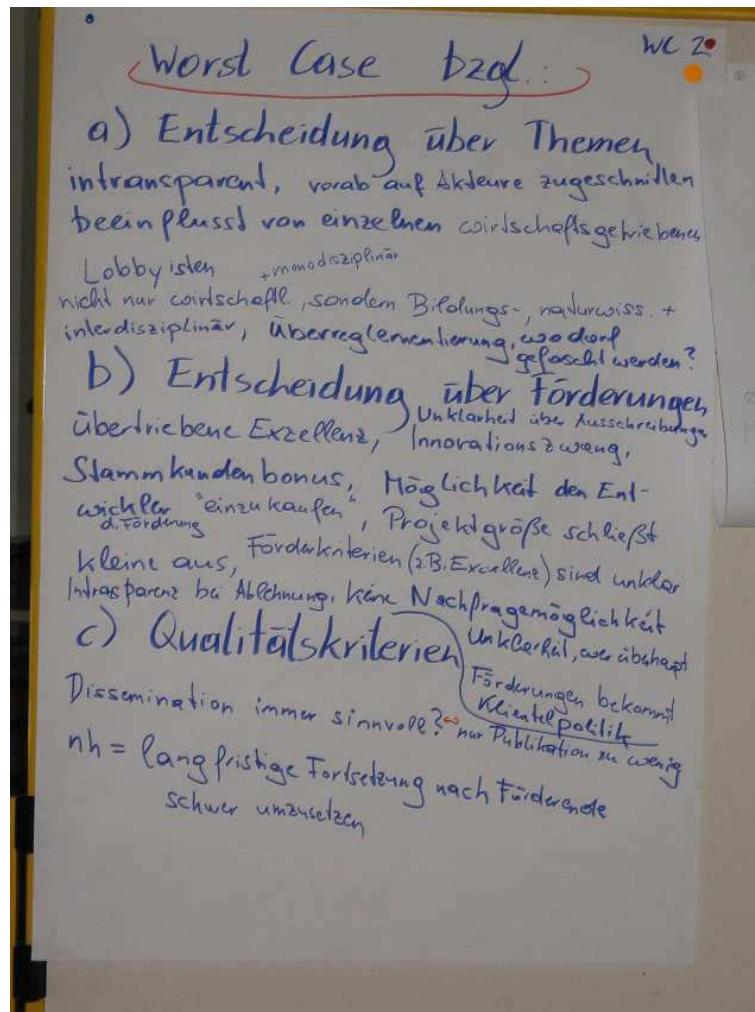 WC 2
Worst Case bzgl.:
a) Entscheidung über Themen
intransparent, vorab auf Akteure zugeschnitten
beeinflusst von einzelnen wirtschaftsgetriebenen
Lobbyisten + monodisziplinär
nicht nur wirtschaftl., sondern Bildungs-, naturwiss. +
interdisziplinär, Überreglementierung, wo darf
geforscht werden?
b) Entscheidung über Förderungen
Unklarheit über Ausschreibungen
übertriebene Exzellenz, Innovationszwang,
Stammkundenbonus, Möglichkeit den Ent-
wickler "einzukaufen", Projektgröße schließt
d. Förderung
kleine aus, Förderkriterien (z.B. Excellenz) sind unklar
Intrasparenz bei Ablehnung, keine Nachfragemöglichkeit
Unklarheit, wer überhaupt
Förderungen bekommt
Klientelpolitik
c) Qualitätskriterien
Dissemination immer sinnvoll? ⇔ nur Publikation zu wenig
nh = langfristige Fortsetzung nach Förderende
schwer umzusetzen